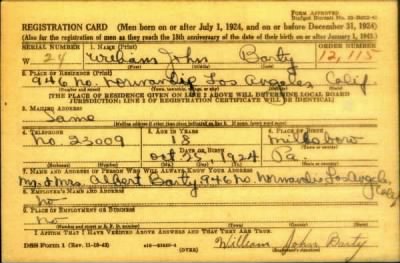 FORM APPROVED
REGISTRATION CARD (Men born on or after July 1, 1924, and on or before December 31, 1924)
(Also for the registration of men as they reach the 18th anniversary of the date of their birth on or after January 1, 1943.)
SERIAL NUMBER 1. NAME (Print) ORDER NUMBER
W 24 William John Barty 12,115
2. PLACE OF RESIDENCE (Print)
946 No. Normandie Los Angeles Calif
(THE PLACE OF RESIDENCE GIVEN ON LINE 2 ABOVE WILL DETERMINE LOCAL BOARD
JURISDICTION; LINE 2 OF REGISTRATION CERTIFICATE WILL BE IDENTICAL)
3. MAILING ADDRESS
Same
4. TELEPHONE 5. AGE IN YEARS 6. PLACE OF BIRTH
No. 23009 18 Millsboro
DATE OF BIRTH
Oct 25, 1924 Pa.
7. NAME AND ADDRESS OF PERSON WHO WILL ALWAYS KNOW YOUR ADDRESS
Mr & Mrs Albert Barty 946 No Normandie Los Angeles Calif
8. EMPLOYER'S NAME AND ADDRESS
No
9. PLACE OF EMPLOYMENT OR BUSINESS
No
I AFFIRM THAT I HAVE VERIFIED ABOVE ANSWERS AND THAT THEY ARE TRUE.
DSS Form 1 (OVER) William John Barty